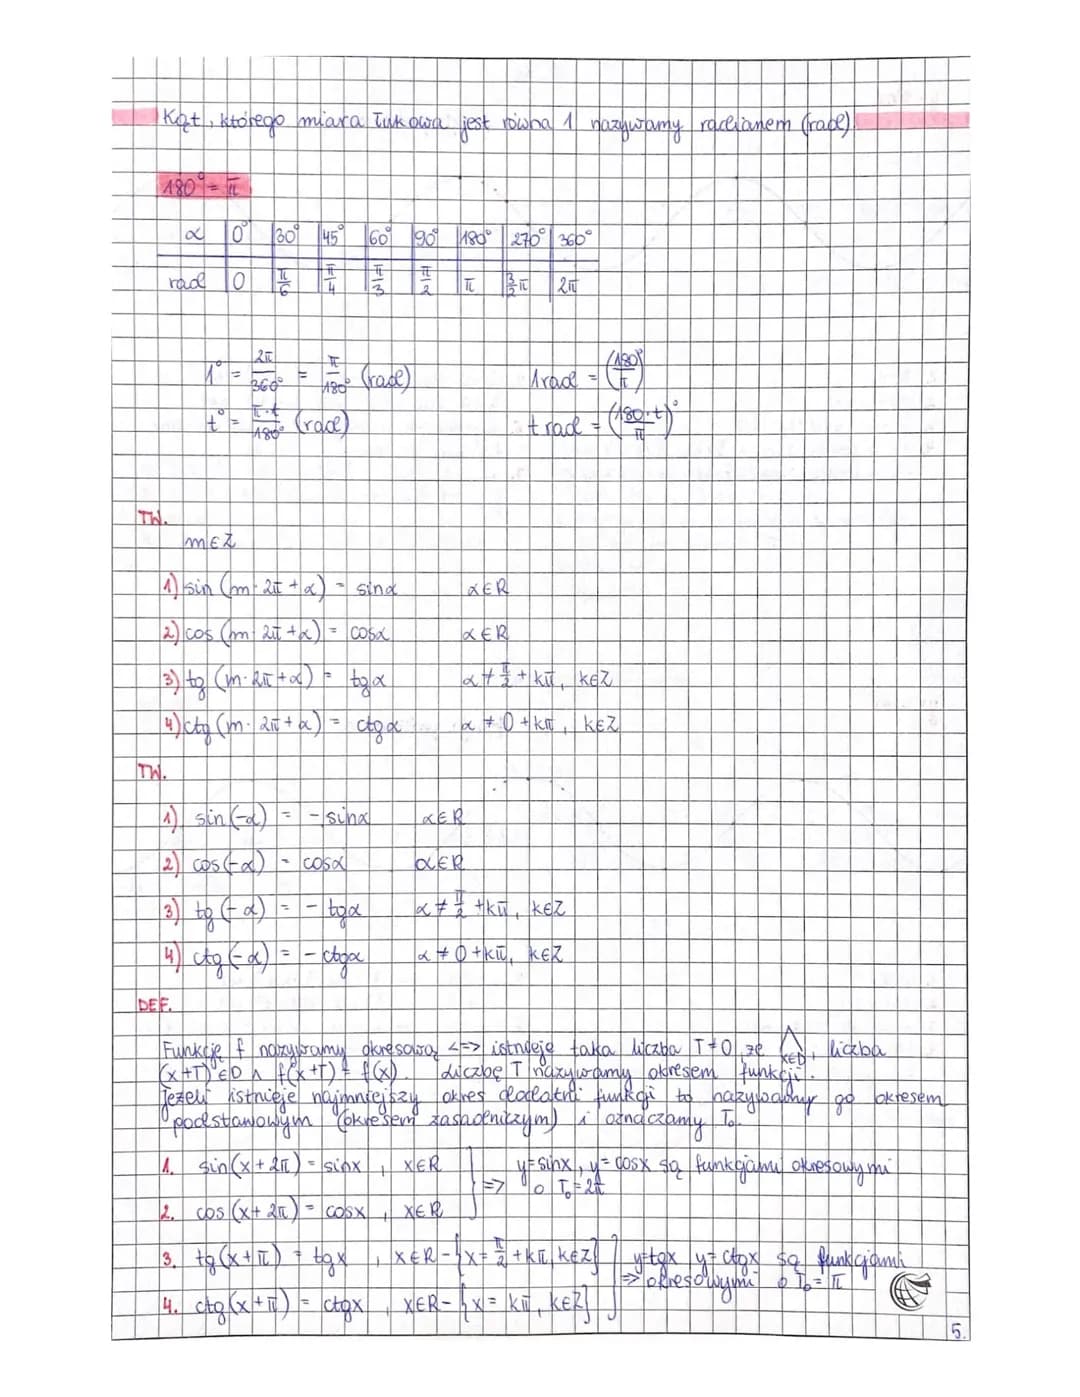 Kąt, którego miara łukowa jest równa 1 nazywamy radianem (rad).
180° = π
α 0° 30° 45° 60° 90° 180° 270° 360°
rad 0 π/6 π/4 π/3 π/2 π 3/2 π 2π
1° = 2π/360° = π/180° (rad) 1 rad = (180/π)°
t° = π·t/180° (rad) t rad = (180·t/π)°
TW.
m∈Z
1) sin (m·2π+α) = sinα α∈R
2) cos (m·2π+α) = cosα α∈R
3) tg (m·2π+α) = tgα α≠π/2+kπ, k∈Z
4) ctg (m·2π+α) = ctgα α≠0+kπ, k∈Z
TW.
1) sin(-α) = -sinα α∈R
2) cos(-α) = cosα α∈R
3) tg(-α) = -tgα α≠π/2+kπ, k∈Z
4) ctg(-α) = -ctgα α≠0+kπ, k∈Z
DEF.
Funkcję f nazywamy okresową <=> istnieje taka liczba T≠0, że ⋀ x∈D, liczba
(x+T)∈D ∧ f(x+T) = f(x). Liczbę T nazywamy okresem funkcji.
Jeżeli istnieje najmniejszy okres dodatni funkcji to nazywamy go okresem
podstawowym (okresem zasadniczym) i oznaczamy T₀.
1. sin(x+2π) = sinx, x∈R => y=sinx, y=cosx są funkcjami okresowymi
o T₀=2π
2. cos(x+2π) = cosx, x∈R
3. tg(x+π) = tgx, x∈R-{x=π/2+kπ, k∈Z} y=tgx, y=ctgx są funkcjami
=> okresowymi o T₀=π
4. ctg(x+π) = ctgx, x∈R-{x=kπ, k∈Z}
5.